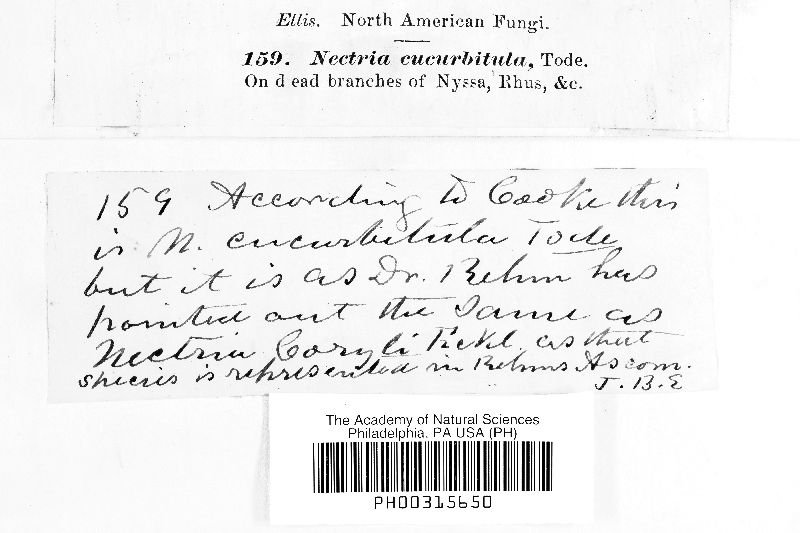 Ellis. North American Fungi.
159. Nectria cucurbitula, Tode.
On d ead branches of Nyssa, Rhus, &c.
159 According to Cooke this
is N. cucurbitula Tode
but it is as Dr. Rehm has
pointed out the same as
Nectria Coryli Fckl. as that
species is represented in Rehms Ascom.
J. B. E
The Academy of Natural Sciences
Philadelphia, PA USA (PH)
PH00315650